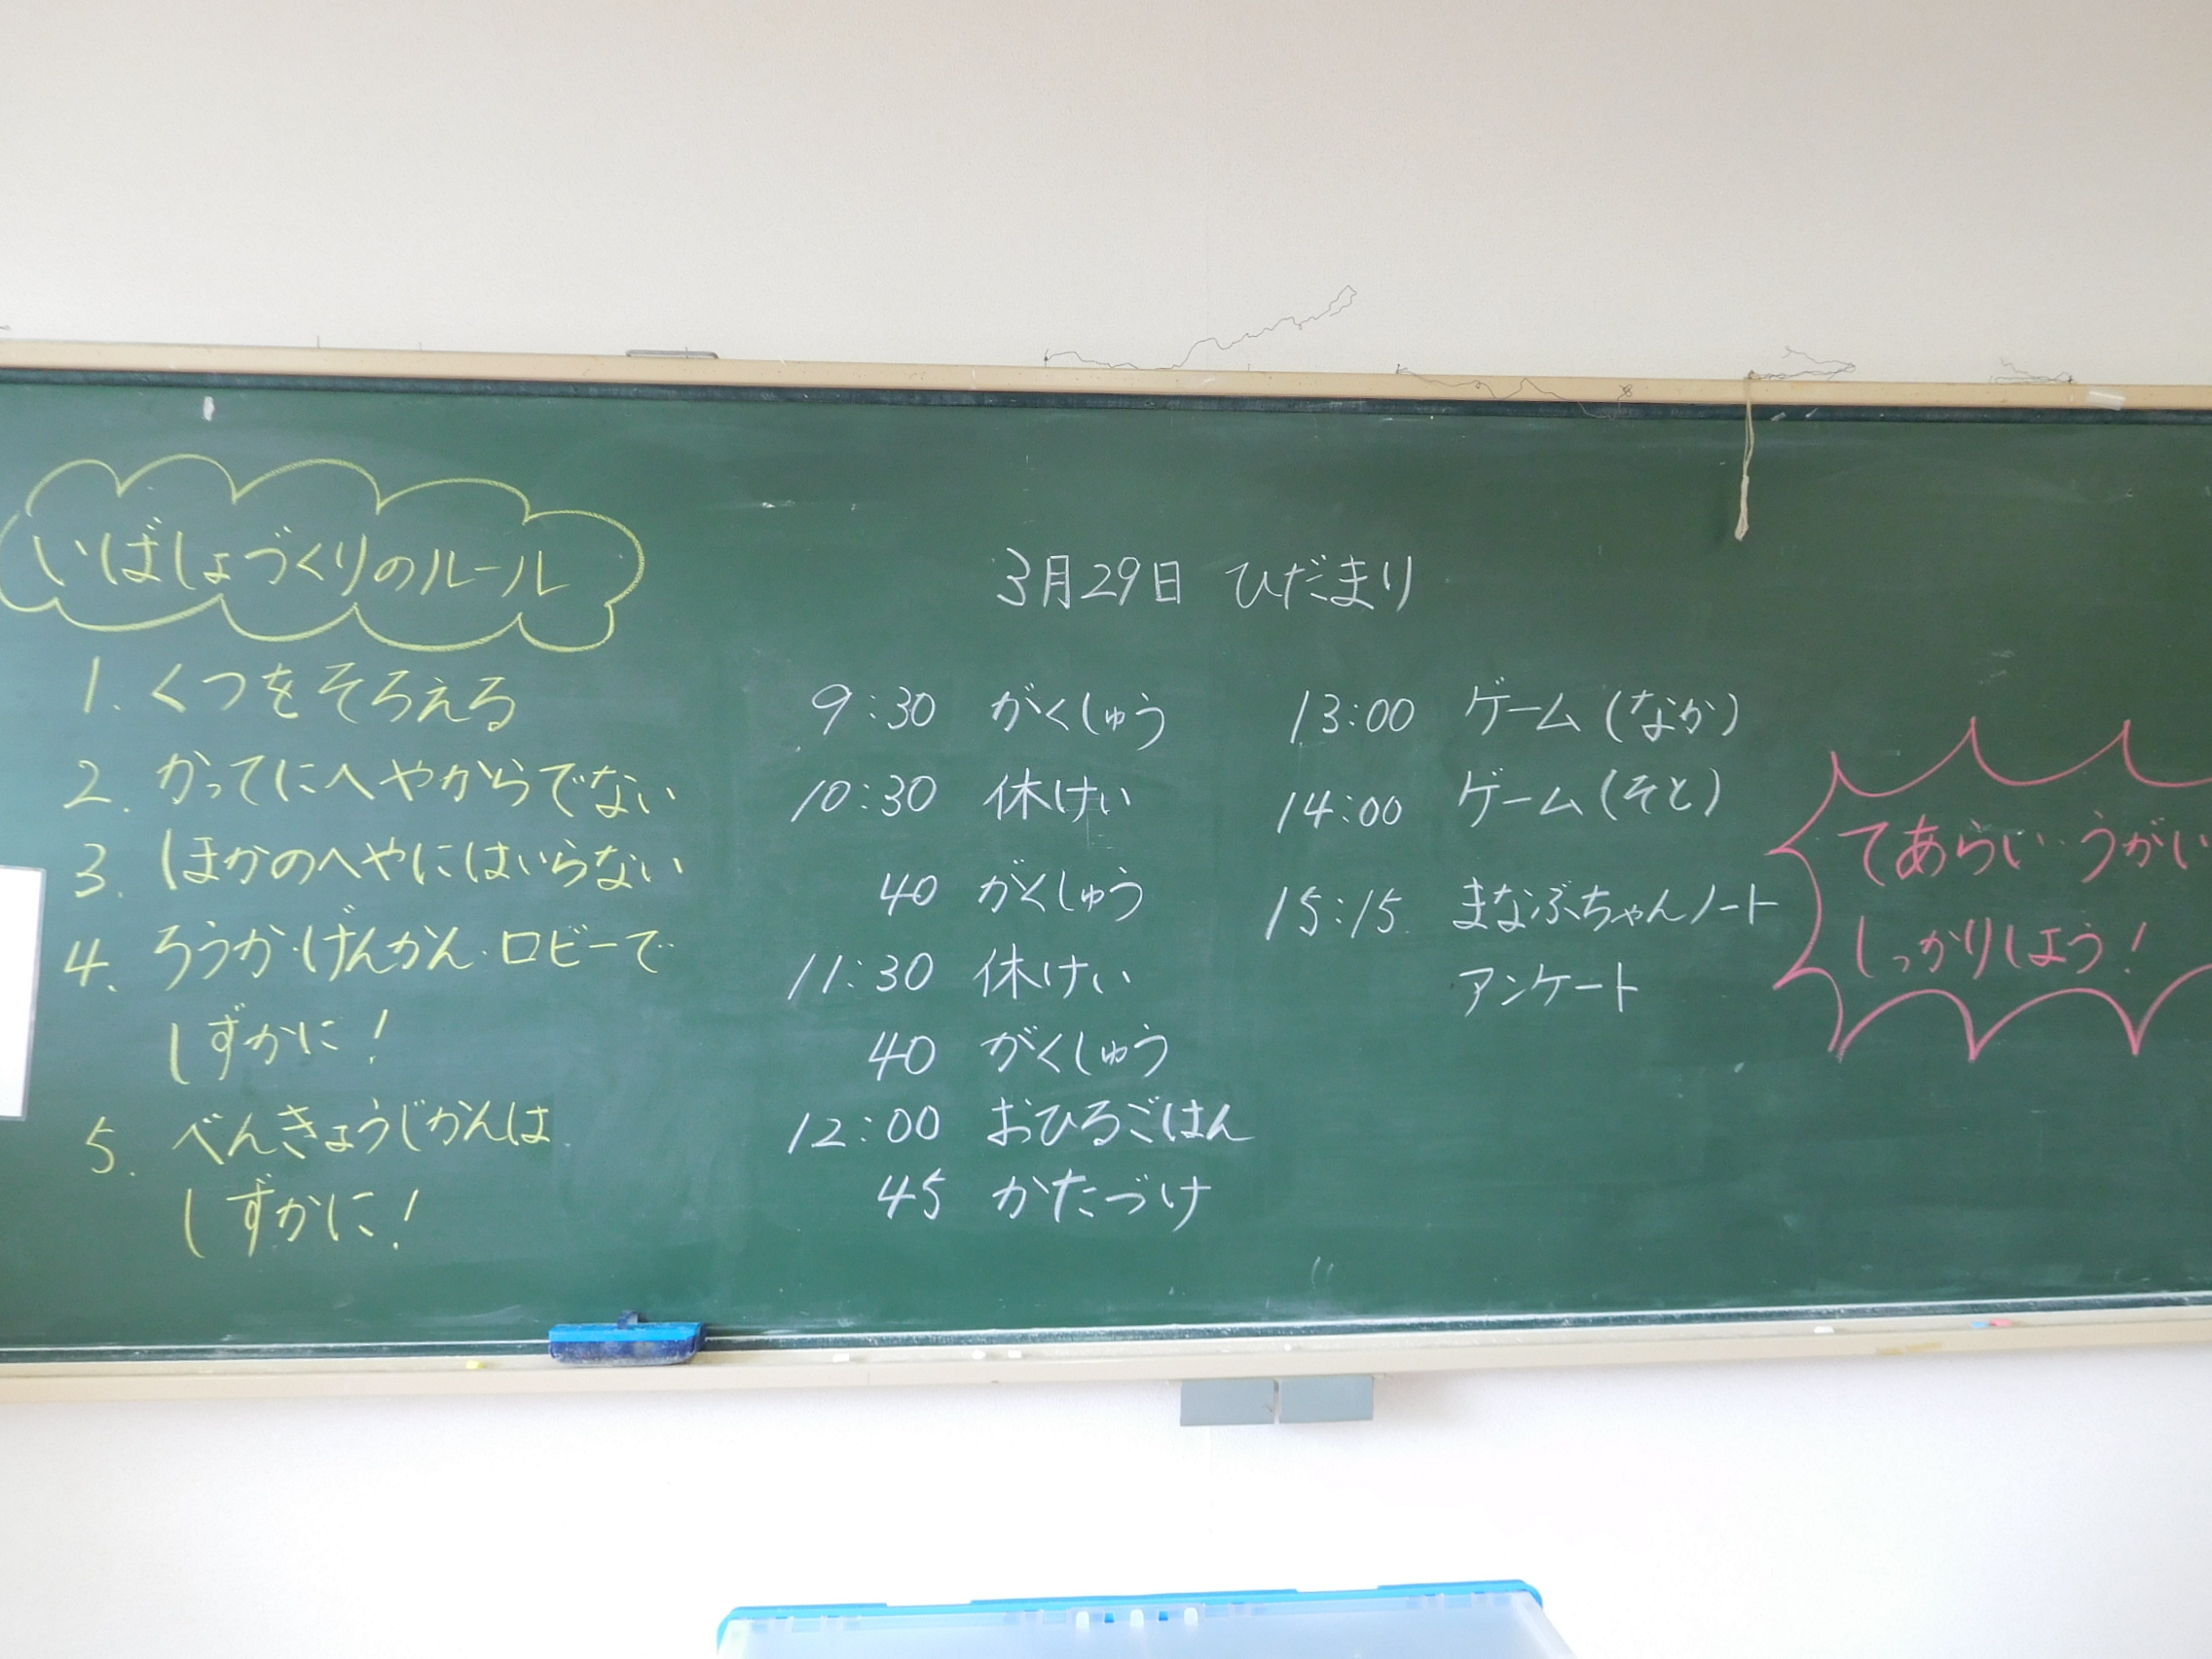 いばしょづくりのルール
1. くつをそろえる
2. かってにへやからでない
3. ほかのへやにはいらない
4. ろうか・げんかん・ロビーで
しずかに!
5. べんきょうじかんは
しずかに!
3月29日 ひだまり
9:30 がくしゅう
10:30 休けい
40 がくしゅう
11:30 休けい
40 がくしゅう
12:00 おひるごはん
45 かたづけ
13:00 ゲーム(なか)
14:00 ゲーム(そと)
15:15 まなぶちゃんノート
アンケート
てあらい・うがい
しっかりしよう!